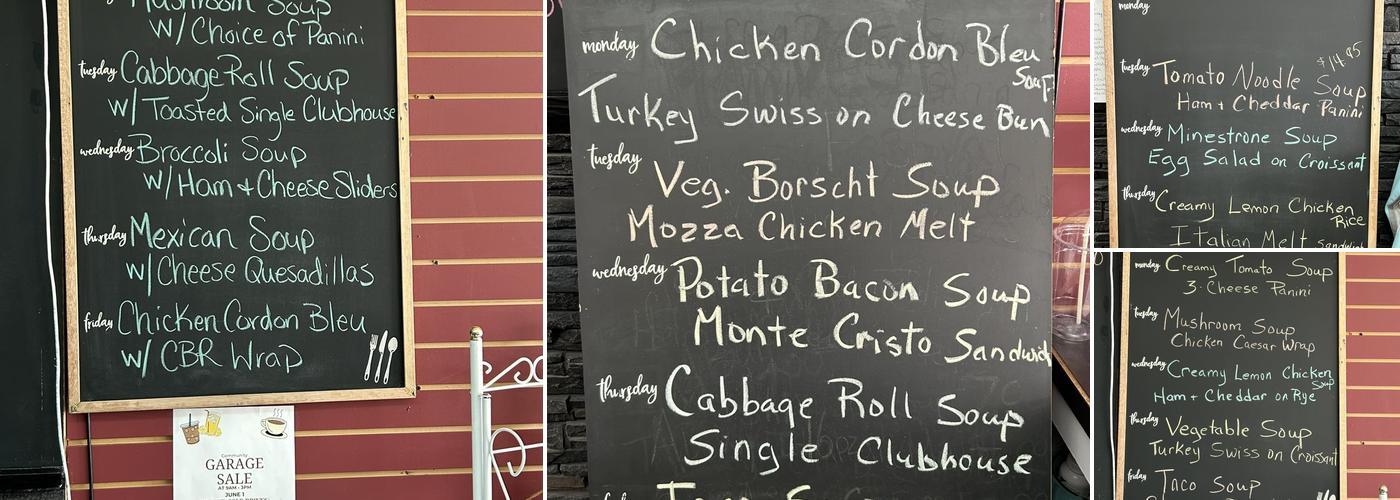 Mushroom Soup
w/ Choice of Panini
tuesday Cabbage Roll Soup
w/ Toasted Single Clubhouse
wednesday Broccoli Soup
w/ Ham + Cheese Sliders
thursday Mexican Soup
w/ Cheese Quesadillas
friday Chicken Cordon Bleu
w/ CBR Wrap
Community
GARAGE
SALE
AT 9AM - 3PM
JUNE 1
monday Chicken Cordon Bleu
Soup
Turkey Swiss on Cheese Bun
tuesday
Veg. Borscht Soup
Mozza Chicken Melt
wednesday Potato Bacon Soup
Monte Cristo Sandwich
thursday Cabbage Roll Soup
Single Clubhouse
monday
$14.95
tuesday Tomato Noodle Soup
Ham + Cheddar Panini
wednesday Minestrone Soup
Egg Salad on Croissant
thursday Creamy Lemon Chicken
Rice
Italian Melt Sandwich
monday Creamy Tomato Soup
3-Cheese Panini
tuesday Mushroom Soup
Chicken Caesar Wrap
wednesday Creamy Lemon Chicken
Soup
Ham + Cheddar on Rye
thursday Vegetable Soup
Turkey Swiss on Croissant
friday Taco Soup